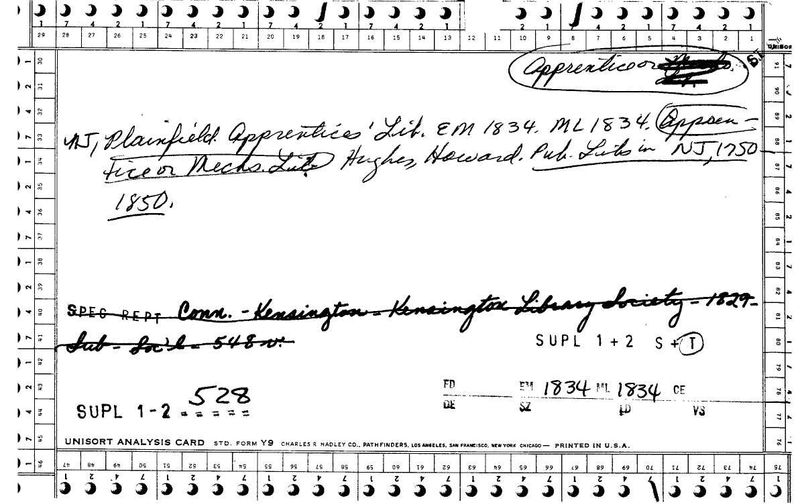 Apprentice or
S.T
NJ, Plainfield. Apprentices' Lib. EM 1834. ML 1834. Appren-
tice or Mechs. Lib. Hughes, Howard. Pub. Libs in NJ, 1750
1850.
SPEC REPT Conn. - Kensington - Kensington Library Society - 1829 -
Sub - Soc'l - 548 v.
SUPL 1+2 S+T
SUPL 1-2 528
FD EM 1834 ML 1834 CE
DE SZ LD VS
UNISORT ANALYSIS CARD STD. FORM Y9 CHARLES R. HADLEY CO., PATHFINDERS, LOS ANGELES, SAN FRANCISCO, NEW YORK CHICAGO — PRINTED IN U.S.A.